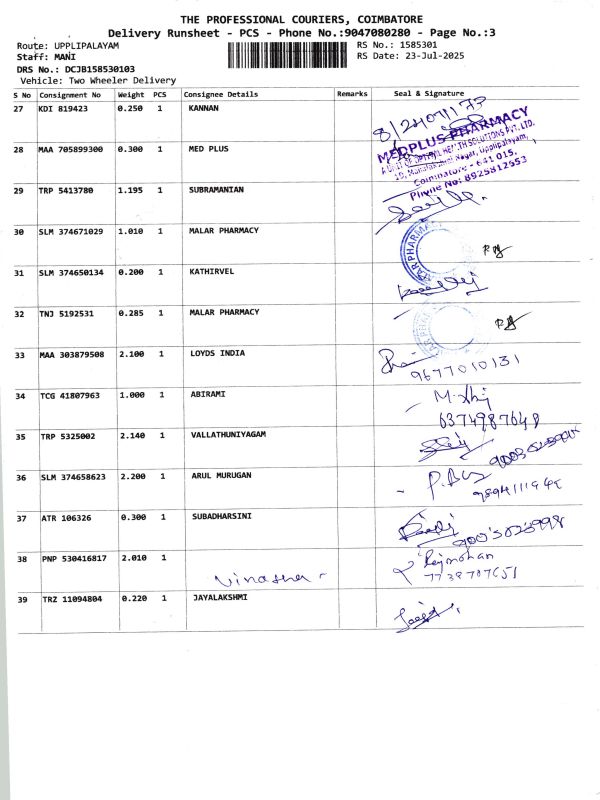 THE PROFESSIONAL COURIERS, COIMBATORE
Delivery Runsheet - PCS - Phone No.:9047080280 - Page No.:3
Route: UPPLIPALAYAM
RS No.: 1585301
Staff: MANI
RS Date: 23-Jul-2025
DRS No.: DCJB158530103
Vehicle: Two Wheeler Delivery
S No Consignment No Weight PCS Consignee Details Remarks Seal & Signature
27 KDI 819423 0.250 1 KANNAN
28 MAA 705899300 0.300 1 MED PLUS
MEDPLUS PHARMACY
Coimbatore - 641 015.
Phone No: 8925812953
29 TRP 5413780 1.195 1 SUBRAMANIAN
30 SLM 374671029 1.010 1 MALAR PHARMACY
31 SLM 374650134 0.200 1 KATHIRVEL
32 TNJ 5192531 0.285 1 MALAR PHARMACY
33 MAA 303879508 2.100 1 LOYDS INDIA
9677010131
34 TCG 41807963 1.000 1 ABIRAMI
6374987648
35 TRP 5325002 2.140 1 VALLATHUNIYAGAM
36 SLM 374658623 2.200 1 ARUL MURUGAN
37 ATR 106326 0.300 1 SUBADHARSINI
38 PNP 530416817 2.010 1
Rajmohan
39 TRZ 11094804 0.220 1 JAYALAKSHMI